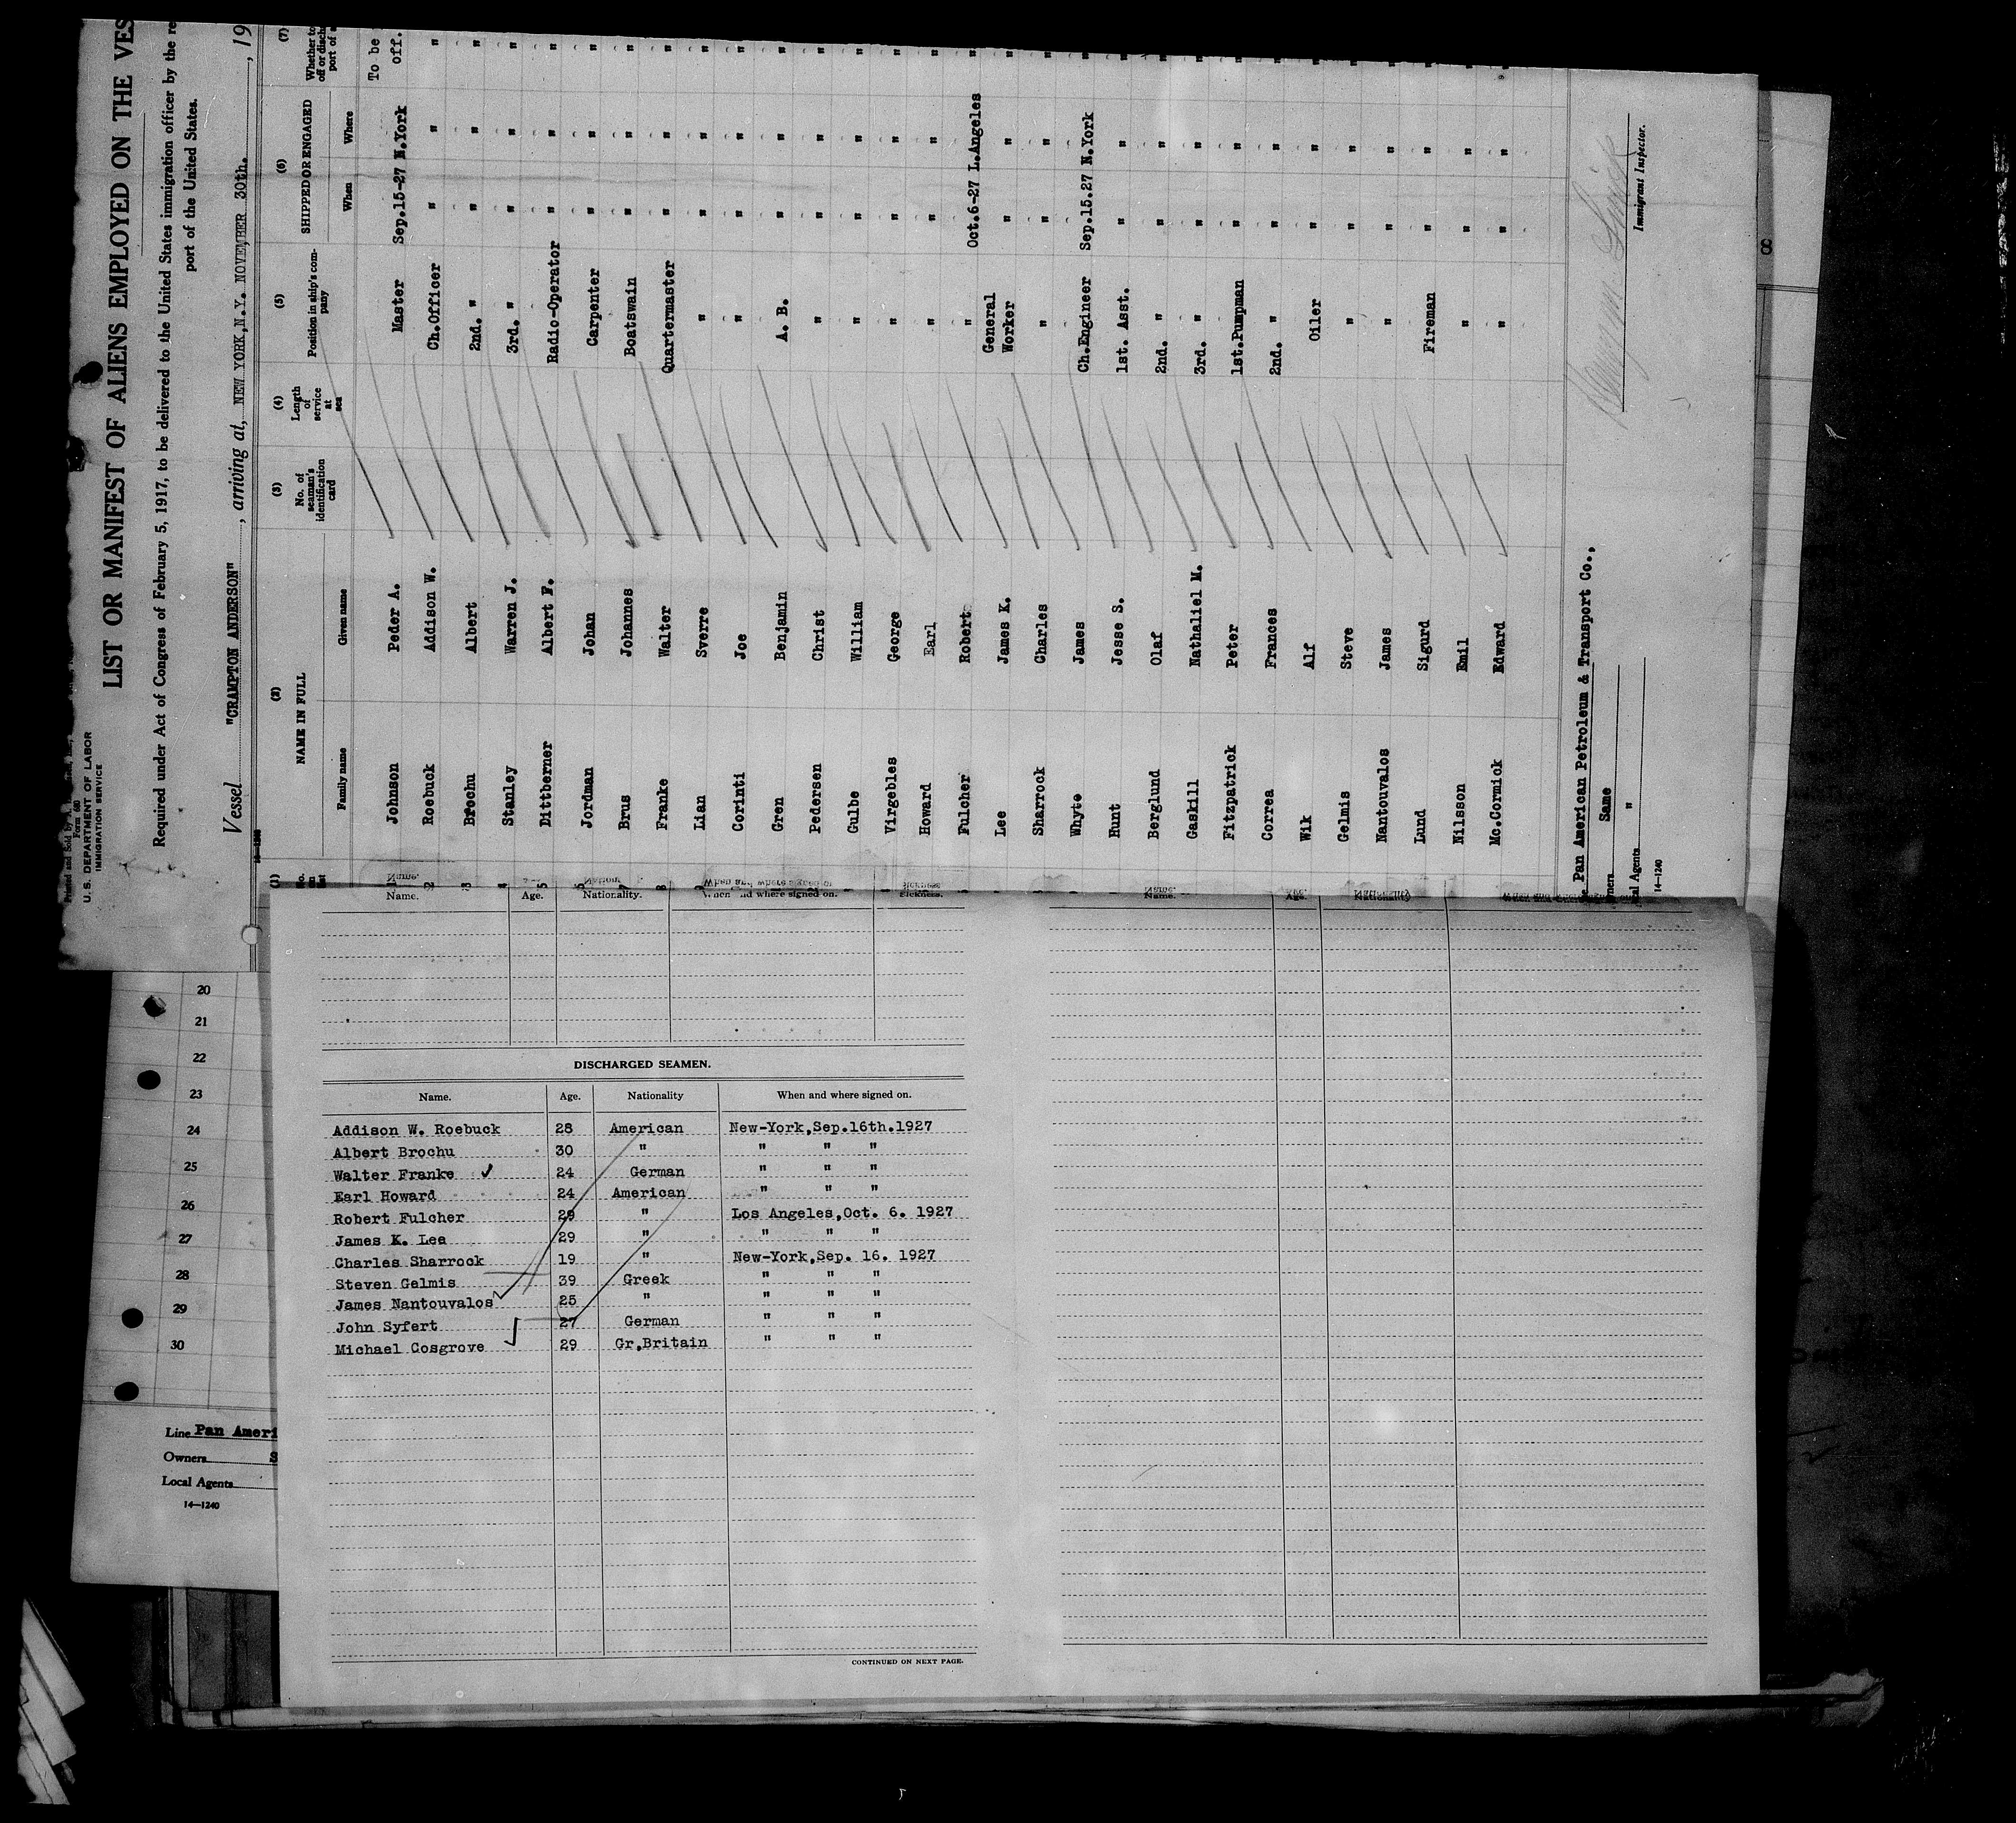 Form 680
U. S. DEPARTMENT OF LABOR
IMMIGRATION SERVICE
LIST OR MANIFEST OF ALIENS EMPLOYED ON THE VES
Required under Act of Congress of February 5, 1917, to be delivered to the United States immigration officer by the re
port of the United States.
Vessel "CRAMPTON ANDERSON", arriving at, NEW YORK,N.Y. NOVEMBER 30th., 19
(1) (2) (3) (4) (5) (6) (7)
NAME IN FULL
Family name Given name
No. of seaman's identification card
Length of service at sea
Position in ship's company
SHIPPED OR ENGAGED
When Where
Johnson Peder A. Master Sep.15-27 N.York To be off.
Roebuck Addison W. Ch.Officer " " "
Brochu Albert 2nd. " " " "
Stanley Warren J. 3rd. " " " "
Dittberner Albert F. Radio-Operator " " "
Jordman Johan Carpenter " " "
Brus Johannes Boatswain " " "
Franke Walter Quartermaster " " "
Lian Sverre " " " "
Corinti Joe " " " "
Gren Benjamin A. B. " " "
Pedersen Christ " " " "
Gulbe William " " " "
Virgebles George " " " "
Howard Earl " " " "
Fulcher Robert " Oct.6-27 L.Angeles "
Lee James K. General Worker " " "
Sharrock Charles " " " "
Whyte James Ch.Engineer Sep.15.27 N.York "
Hunt Jesse S. 1st. Asst. " " "
Berglund Olaf 2nd. " " " "
Gaskill Nathaliel M. 3rd. " " " "
Fitzpatrick Peter 1st.Pumpman " " "
Correa Frances 2nd. " " " "
Wik Alf Oiler " " "
Gelmis Steve " " " "
Nantouvalos James " " " "
Lund Sigurd Fireman " " "
Nilsson Emil " " " "
Mc.Cormick Edward " " " "
Pan American Petroleum & Transport Co.,
Same
Agents "
14—1240
Immigrant Inspector.
8
20
21
22
23
24
25
26
27
28
29
30
Line Pan Ameri
Owners S
Local Agents
14—1240
Name. Age. Nationality. When and where signed on. Sickness.
Name. Age. Nationality
DISCHARGED SEAMEN.
Name. Age. Nationality When and where signed on.
Addison W. Roebuck 28 American New-York,Sep.16th.1927
Albert Brochu 30 " " " "
Walter Franke 24 German " " "
Earl Howard 24 American " " "
Robert Fulcher 29 " Los Angeles,Oct. 6. 1927
James K. Lee 29 " " " "
Charles Sharrock 19 " New-York,Sep. 16. 1927
Steven Gelmis 39 Greek " " "
James Nantouvalos 25 " " " "
John Syfert 27 German " " "
Michael Cosgrove 29 Gr.Britain " " "
CONTINUED ON NEXT PAGE.